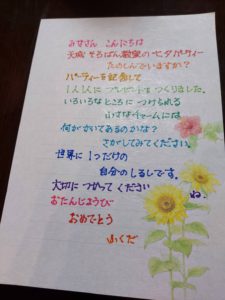 みなさん こんにちは
天城そろばん教室の七夕パーティー
たのしんでいますか？
パーティーを記念して
1人1人にプレゼントをつくりました。
いろいろなところにつけられる
小さなチャームには
何がかいてあるのかな？
さがしてみてください。
世界に1つだけの
自分のしるしです。
大切につかってください
ね。
おたんじょうび
おめでとう
ふくだ